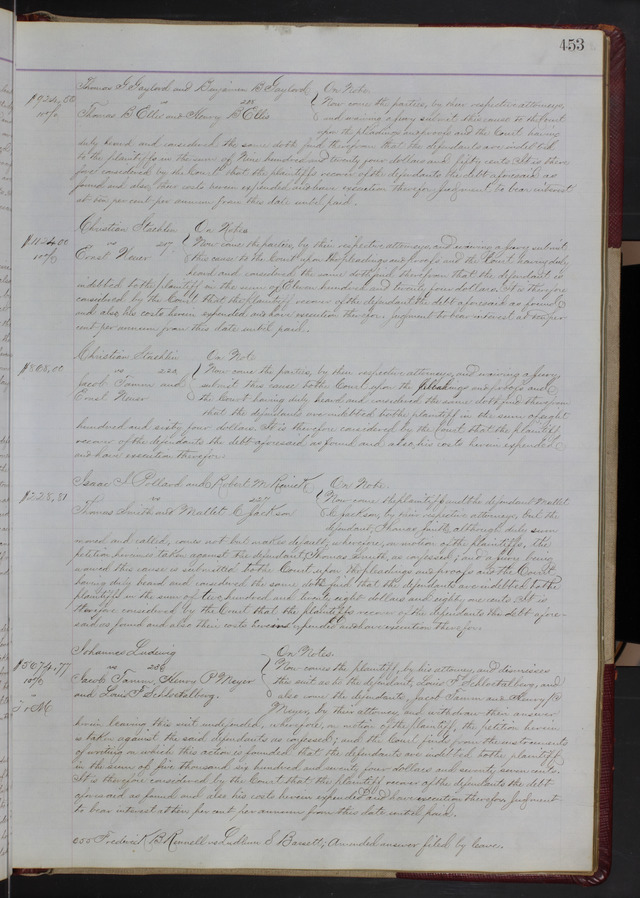 453
Thomas G Gaylord and Benjamin B Gaylord On Note.
$924.50 vs 205 Now come the parties, by their respective attorneys,
10% Thomas B Ellis and Henry B Ellis and waiving a jury submit this cause to the Court
upon the pleadings and proofs and the Court having
duly heard and considered the same doth find thereupon that the defendants are indebted
to the plaintiffs in the sum of Nine hundred and twenty four dollars and fifty cents. It is there
fore considered by the Court that the plaintiffs recover of the defendants the debt aforesaid as
found and also their costs herein expended and have execution therefor. Judgment to bear interest
at ten per cent per annum from this date until paid.
Christian Staehlin On Notes
$1124.00 vs 207. Now come the parties, by their respective attorneys, and waiving a jury submit
10% Ernst Heuer this cause to the Court upon the pleadings and proofs and the Court having duly
heard and considered the same doth find thereupon that the defendant is
indebted to the plaintiff in the sum of Eleven hundred and twenty four dollars. It is therefore
considered by the Court that the plaintiff recover of the defendant the debt aforesaid as found
and also his costs herein expended and have execution therefor. Judgment to bear interest at ten per
cent per annum from this date until paid.
Christian Staehlin On Not
vs Now come the parties, by their respective attorneys, and waiving a jury
Jacob Tamm and submit this cause to the Court upon the pleadings and proofs and
Ernst Heuer the Court having duly heard and considered the same doth find thereupon
that the defendants are indebted to the plaintiff in the sum of eight
hundred and sixty four dollars. It is therefore considered by the Court that the plaintiff
recover of the defendants the debt aforesaid as found and also his costs herein expended
and have execution therefor.
Isaac I Pollard and Robert M Renick On Note.
$228.81 vs 227 Now come the plaintiffs and the defendant Mallet
Thomas Smith and Mallet C Jackson C Jackson, by their respective attorneys, but the
defendant, Thomas Smith, although duly sum
moned and called, comes not but makes default; wherefore, on motion of the plaintiffs, the
petition herein is taken against the defendant, Thomas Smith, as confessed; and a jury being
waived this cause is submitted to the Court upon the pleadings and proofs and the Court
having duly heard and considered the same doth find that the defendants are indebted to the
plaintiffs in the sum of two hundred and twenty eight dollars and eighty one cents. It is
therefore considered by the Court that the plaintiffs recover of the defendants the debt afore-
said as found and also their costs herein expended and have execution therefor.
Johannes Ludwig On Notes.
$5674.77 vs 236 Now comes the plaintiff, by his attorney, and dismisses
10% Jacob Tamm, Henry P Meyer this suit as to the defendant, Louis F Schlostalberg, and
and Louis F Schlostalberg. also come the defendants, Jacob Tamm and Henry P
Meyer, by their attorney, and withdraw their answer
herein leaving this suit undefended, wherefore, on motion of the plaintiff, the petition herein
is taken against the said defendants as confessed; and the Court finds from the instruments
of writing on which this action is founded that the defendants are indebted to the plaintiff
in the sum of five thousand six hundred and seventy four dollars and seventy seven cents.
It is therefore considered by the Court that the plaintiff recover of the defendants the debt
aforesaid as found and also his costs herein expended and have execution therefor. Judgment
to bear interest at ten per cent per annum from this date until paid.
Frederick B Kennell vs Ludlum S Barrett; Amended answer filed by leave.